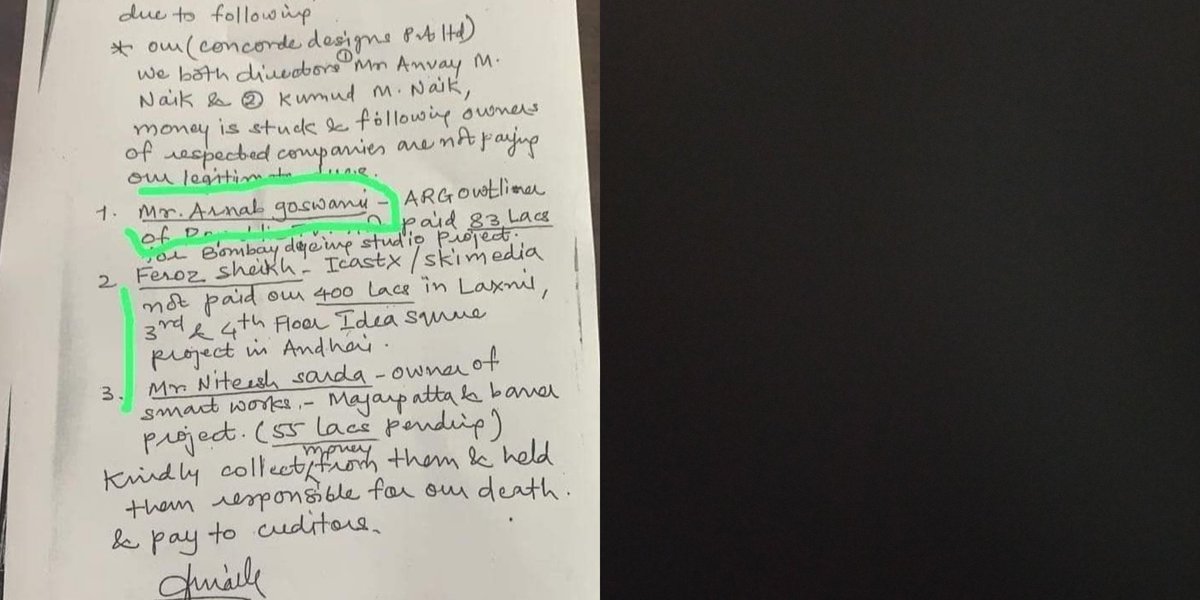 due to following
* our (concorde designs Pvt ltd)
we both directors ① Mr Anvay M.
Naik & ② Kumud M. Naik,
money is stuck & following owners
of respected companies are not paying
our legitimate dues.
1. Mr. Arnab goswami - ARG outlier
of paid 83 Lacs
for Bombay dyeing studio project.
2. Feroz Sheikh - Icastx / skimedia
not paid our 400 lacs in Laxmi,
3rd & 4th Floor Idea square
project in Andheri.
3. Mr. Niteesh sarda - owner of
smart works, - Magarpatta & baner
project. (55 lacs pending)
Kindly collect money from them & held
them responsible for our death.
& pay to creditors.